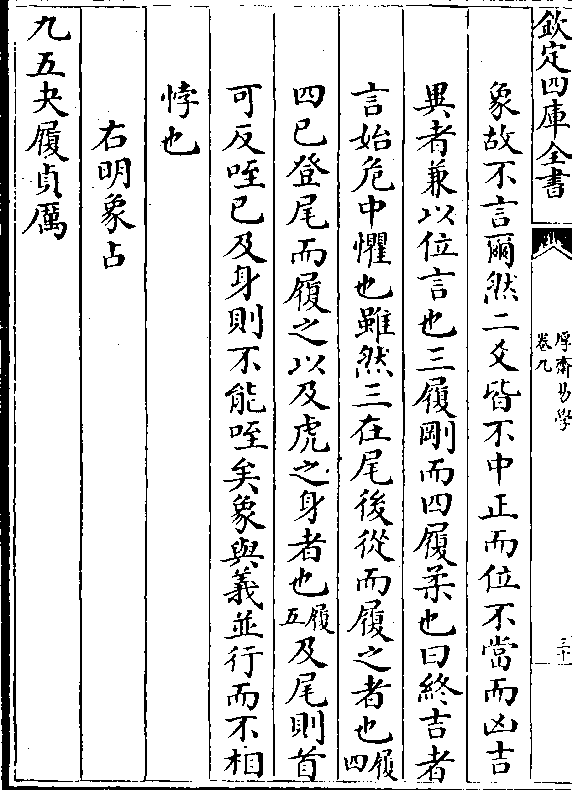 欽定四庫全書
厚齋易學
卷九
三十
象故不言爾然二爻皆不中正而位不當而凶吉
異者兼以位言也三履剛而四履柔也曰終吉者
言始危中懼也雖然三在尾後從而履之者也四履
四已登尾而履之以及虎之身者也五履及尾則首
可反咥已及身則不能咥矣象與義並行而不相
悖也
右明象占
九五夬履貞厲